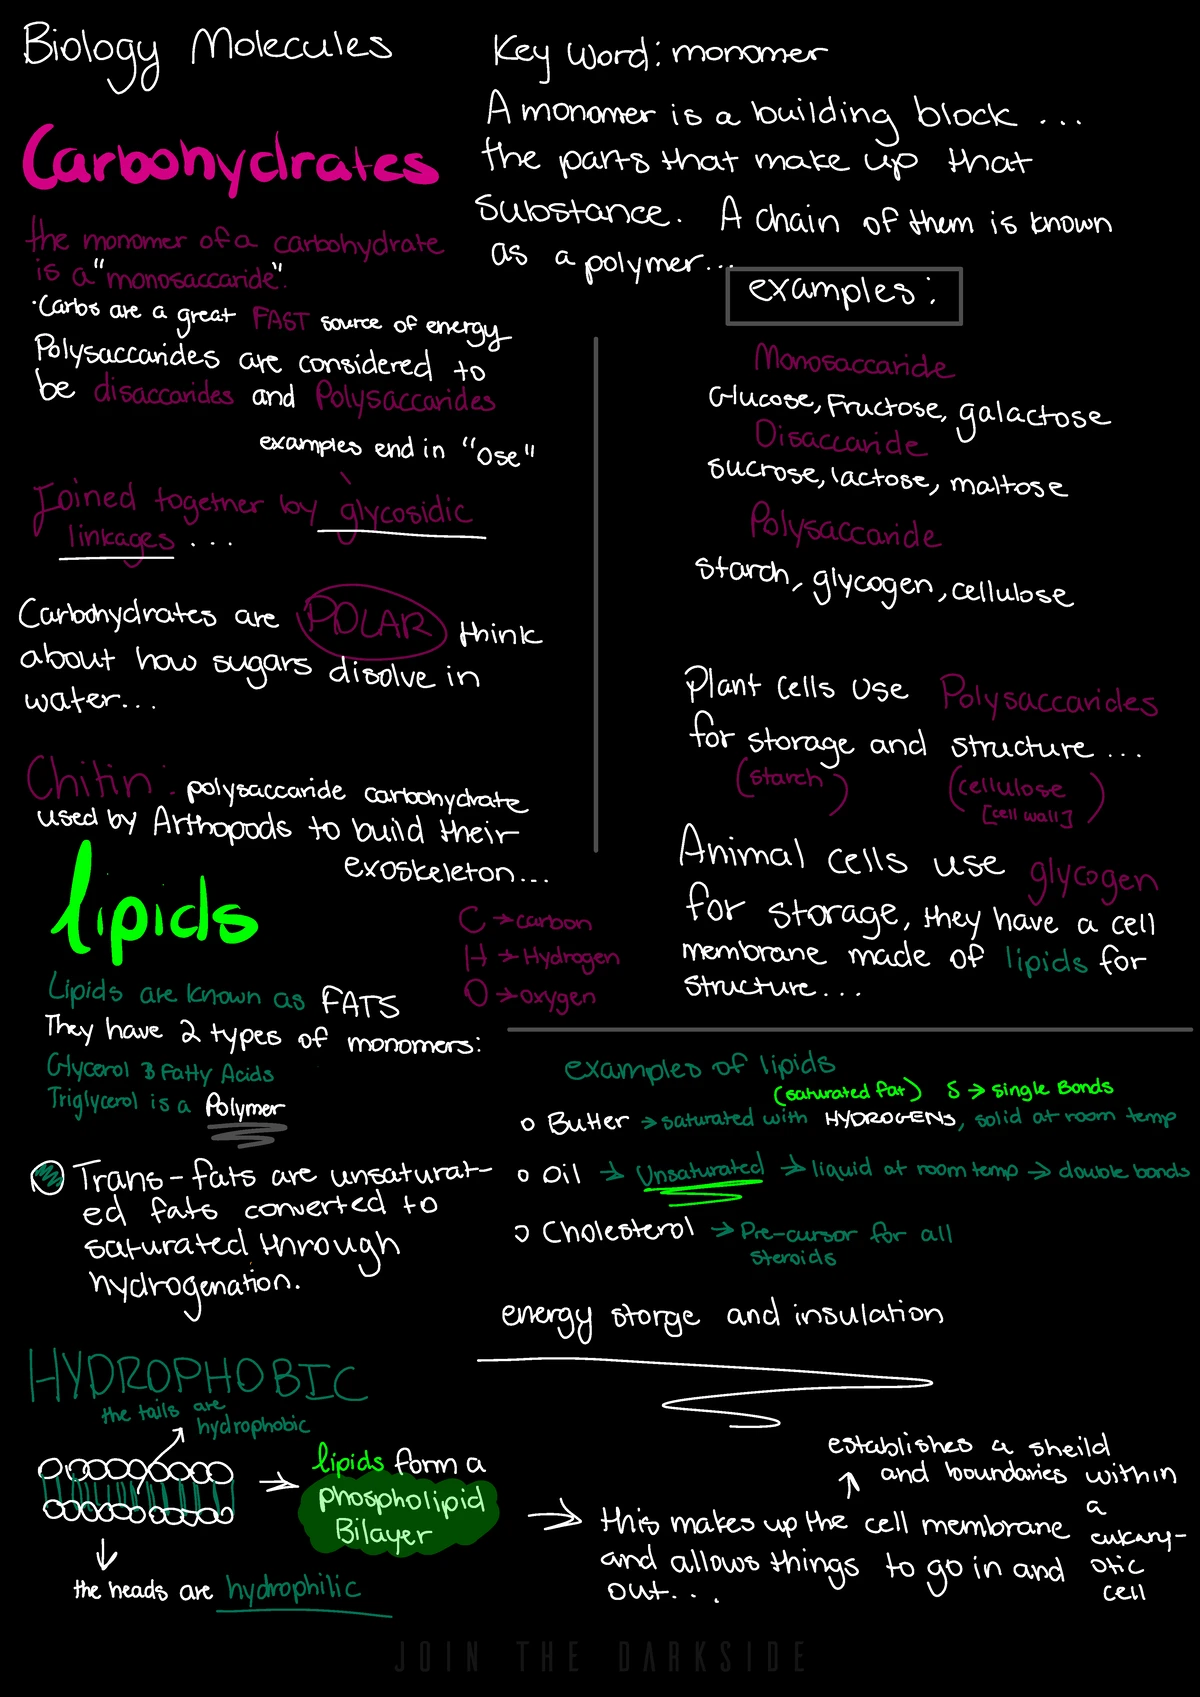 Biology Molecules
Key Word: monomer
A monomer is a building block ...
the parts that make up that
substance. A chain of them is known
as a polymer...
Carbohydrates
the monomer of a carbohydrate
is a "monosaccaride".
·Carbs are a great FAST source of energy
Polysaccarides are considered to
be disaccarides and Polysaccarides
examples end in "ose"
Joined together by glycosidic
linkages ...
Carbohydrates are POLAR think
about how sugars disolve in
water...
Chitin: polysaccaride carbohydrate
used by Arthopods to build their
exoskeleton...
examples:
Monosaccaride
Glucose, Fructose, galactose
Disaccaride
sucrose, lactose, maltose
Polysaccaride
starch, glycogen, cellulose
Plant cells use Polysaccarides
for storage and structure...
(starch) (cellulose
[cell wall])
Animal cells use glycogen
for storage, they have a cell
membrane made of lipids for
structure...
C → carbon
H → Hydrogen
O → oxygen
lipids
Lipids are known as FATS
They have 2 types of monomers:
Glycerol & Fatty Acids
Triglycerol is a Polymer
Trans-fats are unsaturat-
ed fats converted to
saturated through
hydrogenation.
examples of lipids
(saturated fat) S → single Bonds
○ Butter → saturated with HYDROGENS, solid at room temp
○ Oil → Unsaturated → liquid at room temp → double bonds
○ Cholesterol → Pre-cursor for all
steroids
energy storge and insulation
HYDROPHOBIC
the tails are
hydrophobic
the heads are hydrophilic
→ lipids form a
phospholipid
Bilayer
→ this makes up the cell membrane
and allows things to go in and
out...
establishes a sheild
and boundaries within
a
eukary-
otic
cell
JOIN THE DARKSIDE